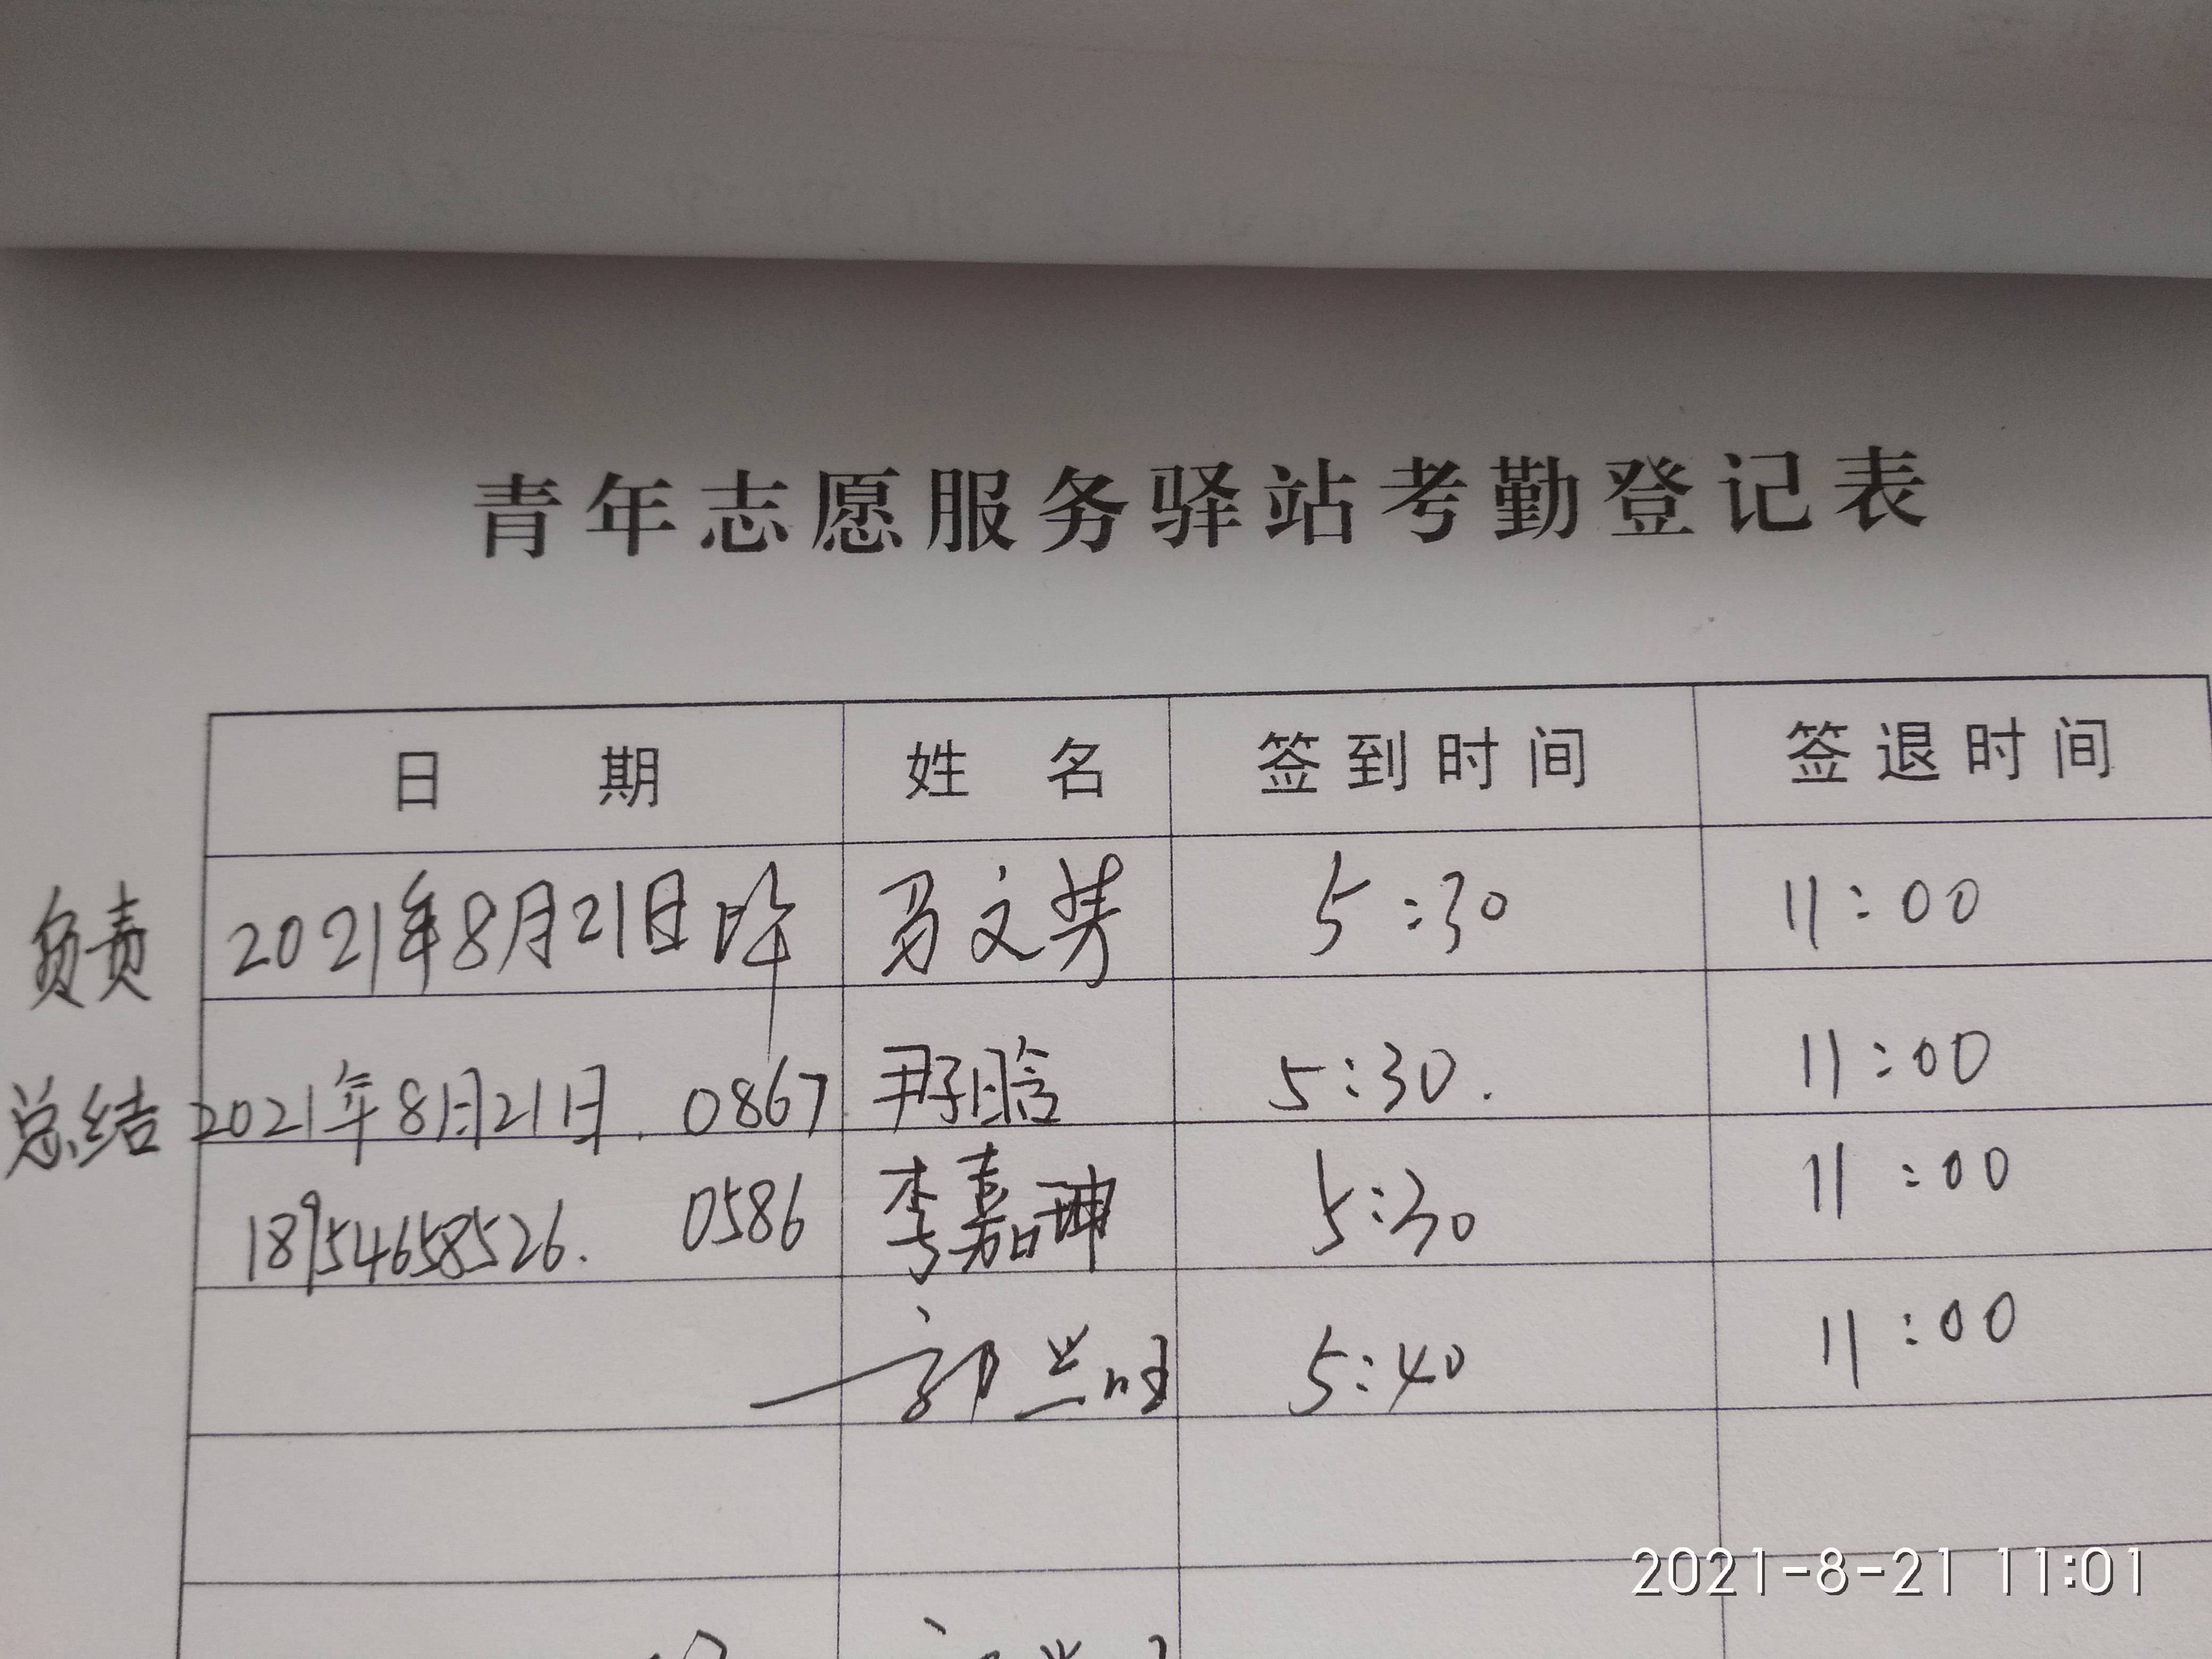 青年志愿服务驿站考勤登记表
日 期 姓 名 签到时间 签退时间
负责 2021年8月21日 马文芳 5:30 11:00
总结 2021年8月21日. 0867 尹子晗 5:30. 11:00
18954658526. 0586 李嘉珅 5:30 11:00
郭兰 5:40 11:00
2021-8-21 11:01